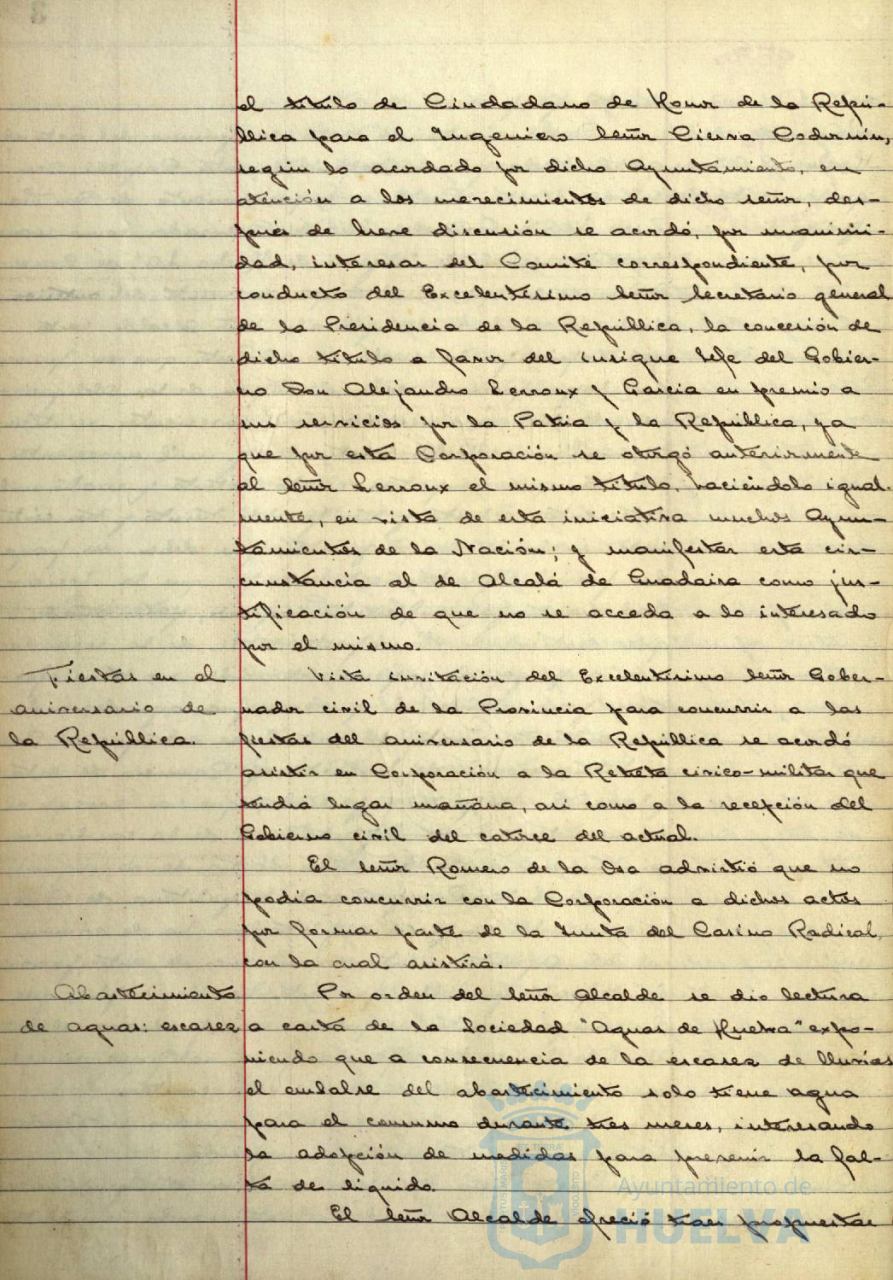 el título de Ciudadano de Honor de la Repú-
blica para el Ingeniero Señor Cierva Codorníu,
según lo acordado por dicho Ayuntamiento, en
atención a los merecimientos de dicho señor, des-
pués de breve discusión se acordó, por unanimi-
dad, interesar del Comité correspondiente, por
conducto del Excelentísimo Señor Secretario general
de la Presidencia de la República, la concesión de
dicho título a favor del insigne Jefe del Gobier-
no Don Alejandro Lerroux y García en premio a
sus servicios por la Patria y la República, ya
que por esta Corporación se otorgó anteriormente
al Señor Lerroux el mismo título, haciéndolo igual-
mente, en vista de esta iniciativa muchos Ayun-
tamientos de la Nación; y manifestar esta cir-
cunstancia al de Alcalá de Guadaira como jus-
tificación de que no se acceda a lo interesado
por el mismo.
Fiestas en el
aniversario de
la República.
Vista invitación del Excelentísimo Señor Gober-
nador civil de la Provincia para concurrir a las
fiestas del aniversario de la República se acordó
asistir en Corporación a la Retreta cívico-militar que
tendrá lugar mañana, así como a la recepción del
Gobierno civil del catorce del actual.
El Señor Romero de la Osa advirtió que no
podía concurrir con la Corporación a dichos actos
por formar parte de la Junta del Casino Radical,
con la cual asistirá.
Abastecimiento
de aguas: escasez
Por orden del Señor Alcalde se dio lectura
a carta de la Sociedad "Aguas de Huelva" expo-
niendo que a consecuencia de la escasez de lluvias
el embalse del abastecimiento solo tiene agua
para el consumo durante tres meses, interesando
la adopción de medidas para prevenir la fal-
ta de líquido.
El Señor Alcalde ofreció traer propuestas
Ayuntamiento de
HUELVA